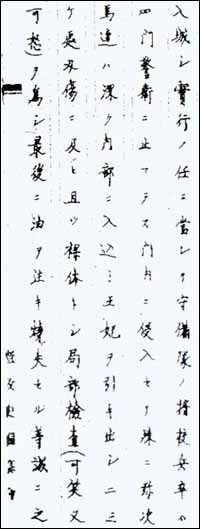 入城シ實行ノ任ニ當レリ守備隊ノ將校兵卒ハ
四門警衛ニ止マラス門内ニ侵入セリ殊ニ弥次
馬連ハ深ク内部ニ入込ミ王妃ヲ引キ出シ二三
ケ処刄傷ニ及ヒ且ツ裸体トシ局部檢査(可笑又
可怒)ヲ為シ最後ニ油ヲ注キ焼失セル等誠ニ之